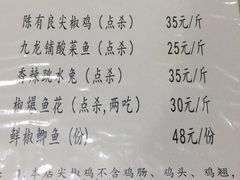 陈有良尖椒鸡(点杀) 35元/斤
九龙铺酸菜鱼(点杀) 25元/斤
香辣跳水兔(点杀) 35元/斤
椒爆鱼花(点杀,两吃) 30元/斤
鲜椒鲫鱼(份) 48元/份
:1.本店尖椒鸡不含鸡肠、鸡头、鸡翅,